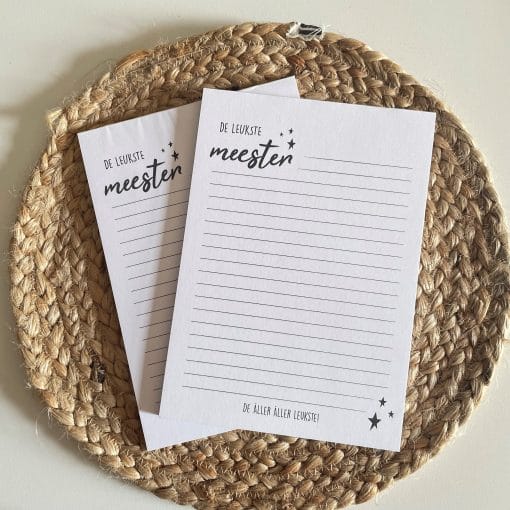 DE LEUKSTE
meester
DE LEUKSTE
meester
DE ÀLLER ÀLLER LEUKSTE!